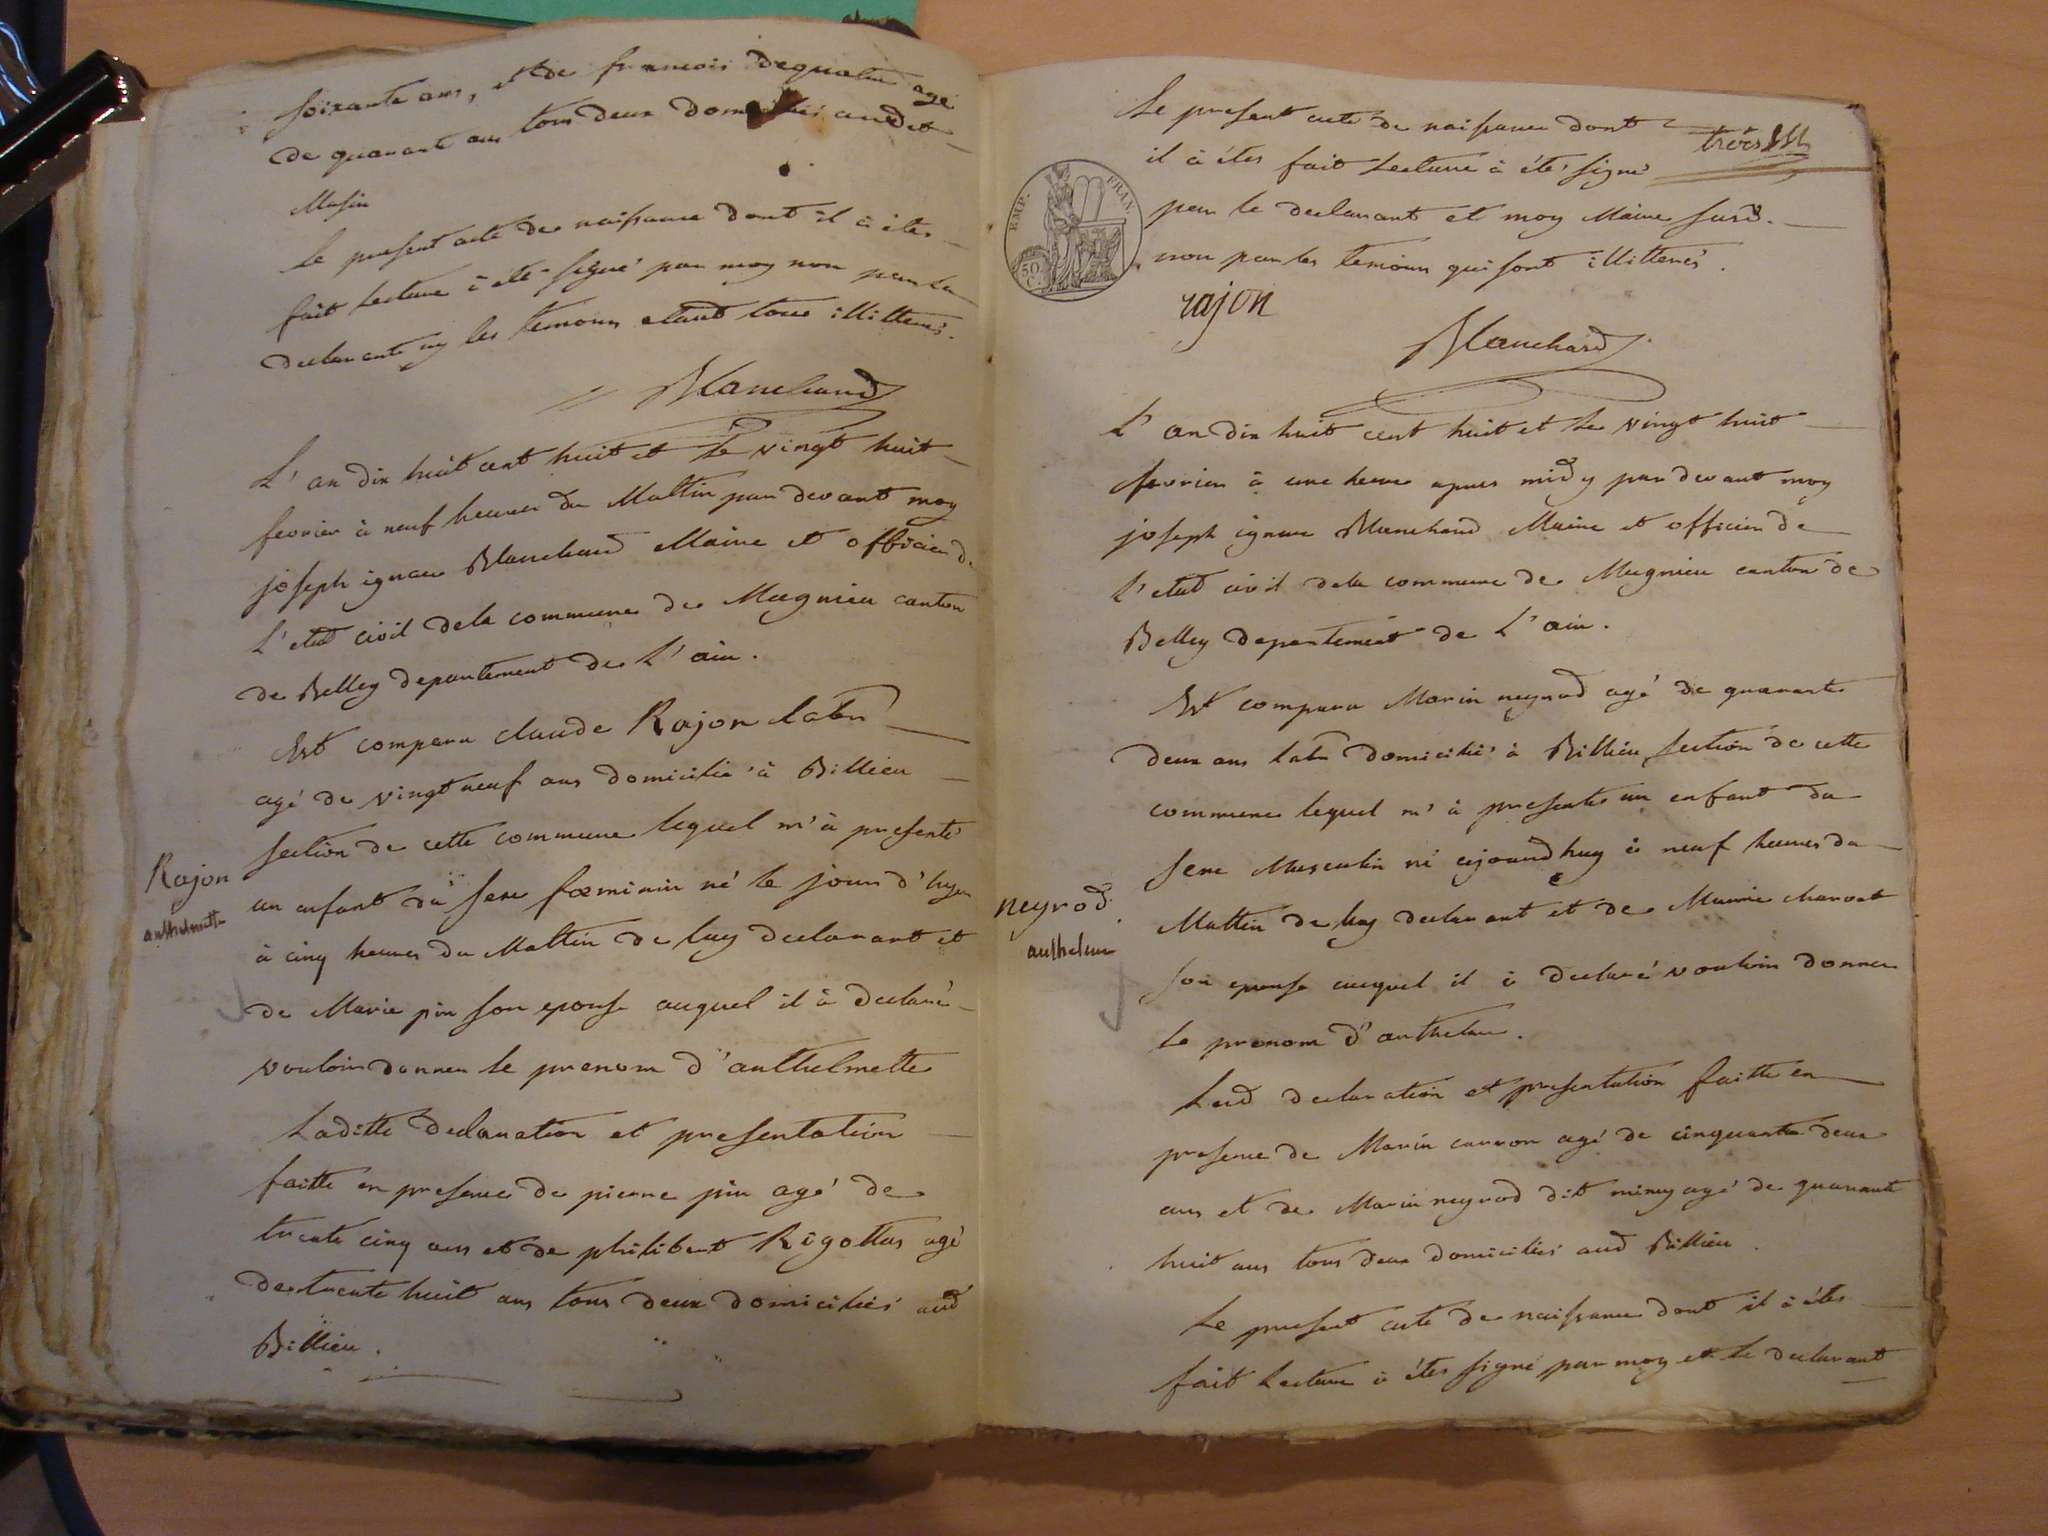 soixante ans, et de francois dequatre agé
de quarant ans tous deux domiciliés audit
Masin
le present acte de naissance dont il à étes
fait lecture à eté signé par moy non par la
declarante ny les temoins etant tous illitterés.
Blanchard
L'an dix huit cent huit et le vingt huit
fevrier à neuf heures du Mattin par devant moy
joseph ignace Blanchard Maire et officier de
L'etat civil de la commune de Mugnieu canton
de Belley departement de L'ain.
Est comparu claude Rajon labr
agé de vingt neuf ans domicilié à Billieu
section de cette commune lequel m'à presenté
Rajon
anthelmette
un enfant du sexe fœminin né le jour d'hyer
à cinq heures du Mattin de luy declarant et
de Marie pin son epouse auquel il à declaré
vouloir donner le prenom d'anthelmette
Laditte declaration et presentation
faitte en presence de pierre pin agé de
trente cinq ans et de philibert Rigottas agé
de trente huit ans tous deux domiciliés aud
Billieu.
Le present acte de naissance dont
trois
il à étes fait Lecture à été signé
par le declarant et moy Maire susd.
non par les temoins qui sont illitterés.
EMP. FRAN.
50 C.
rajon
Blanchard
L'an dix huit cent huit et le vingt huit
fevrier à une heure apres midy par devant moy
joseph ignace Blanchard Maire et officier de
L'etat civil de la commune de Mugnieu canton de
Belley departement de L'ain.
Est comparu Marin neyrod agé de quarante
deux ans labr domicilié à Billieu section de cette
commune lequel m'à presenté un enfant du
sexe Masculin né ajourdhuy à neuf heures du
neyrod
anthelme
Mattin de luy declarant et de Marie charvet
son epouse auquel il à declaré vouloir donner
le prenom d'anthelme.
Lad declaration et presentation faitte en
presence de Marin carron agé de cinquante deux
ans et de Marin neyrod dit miny agé de quarante
huit ans tous deux domiciliés aud Billieu.
Le present acte de naissance dont il à étes
fait Lecture à étes signé par moy et le declarant